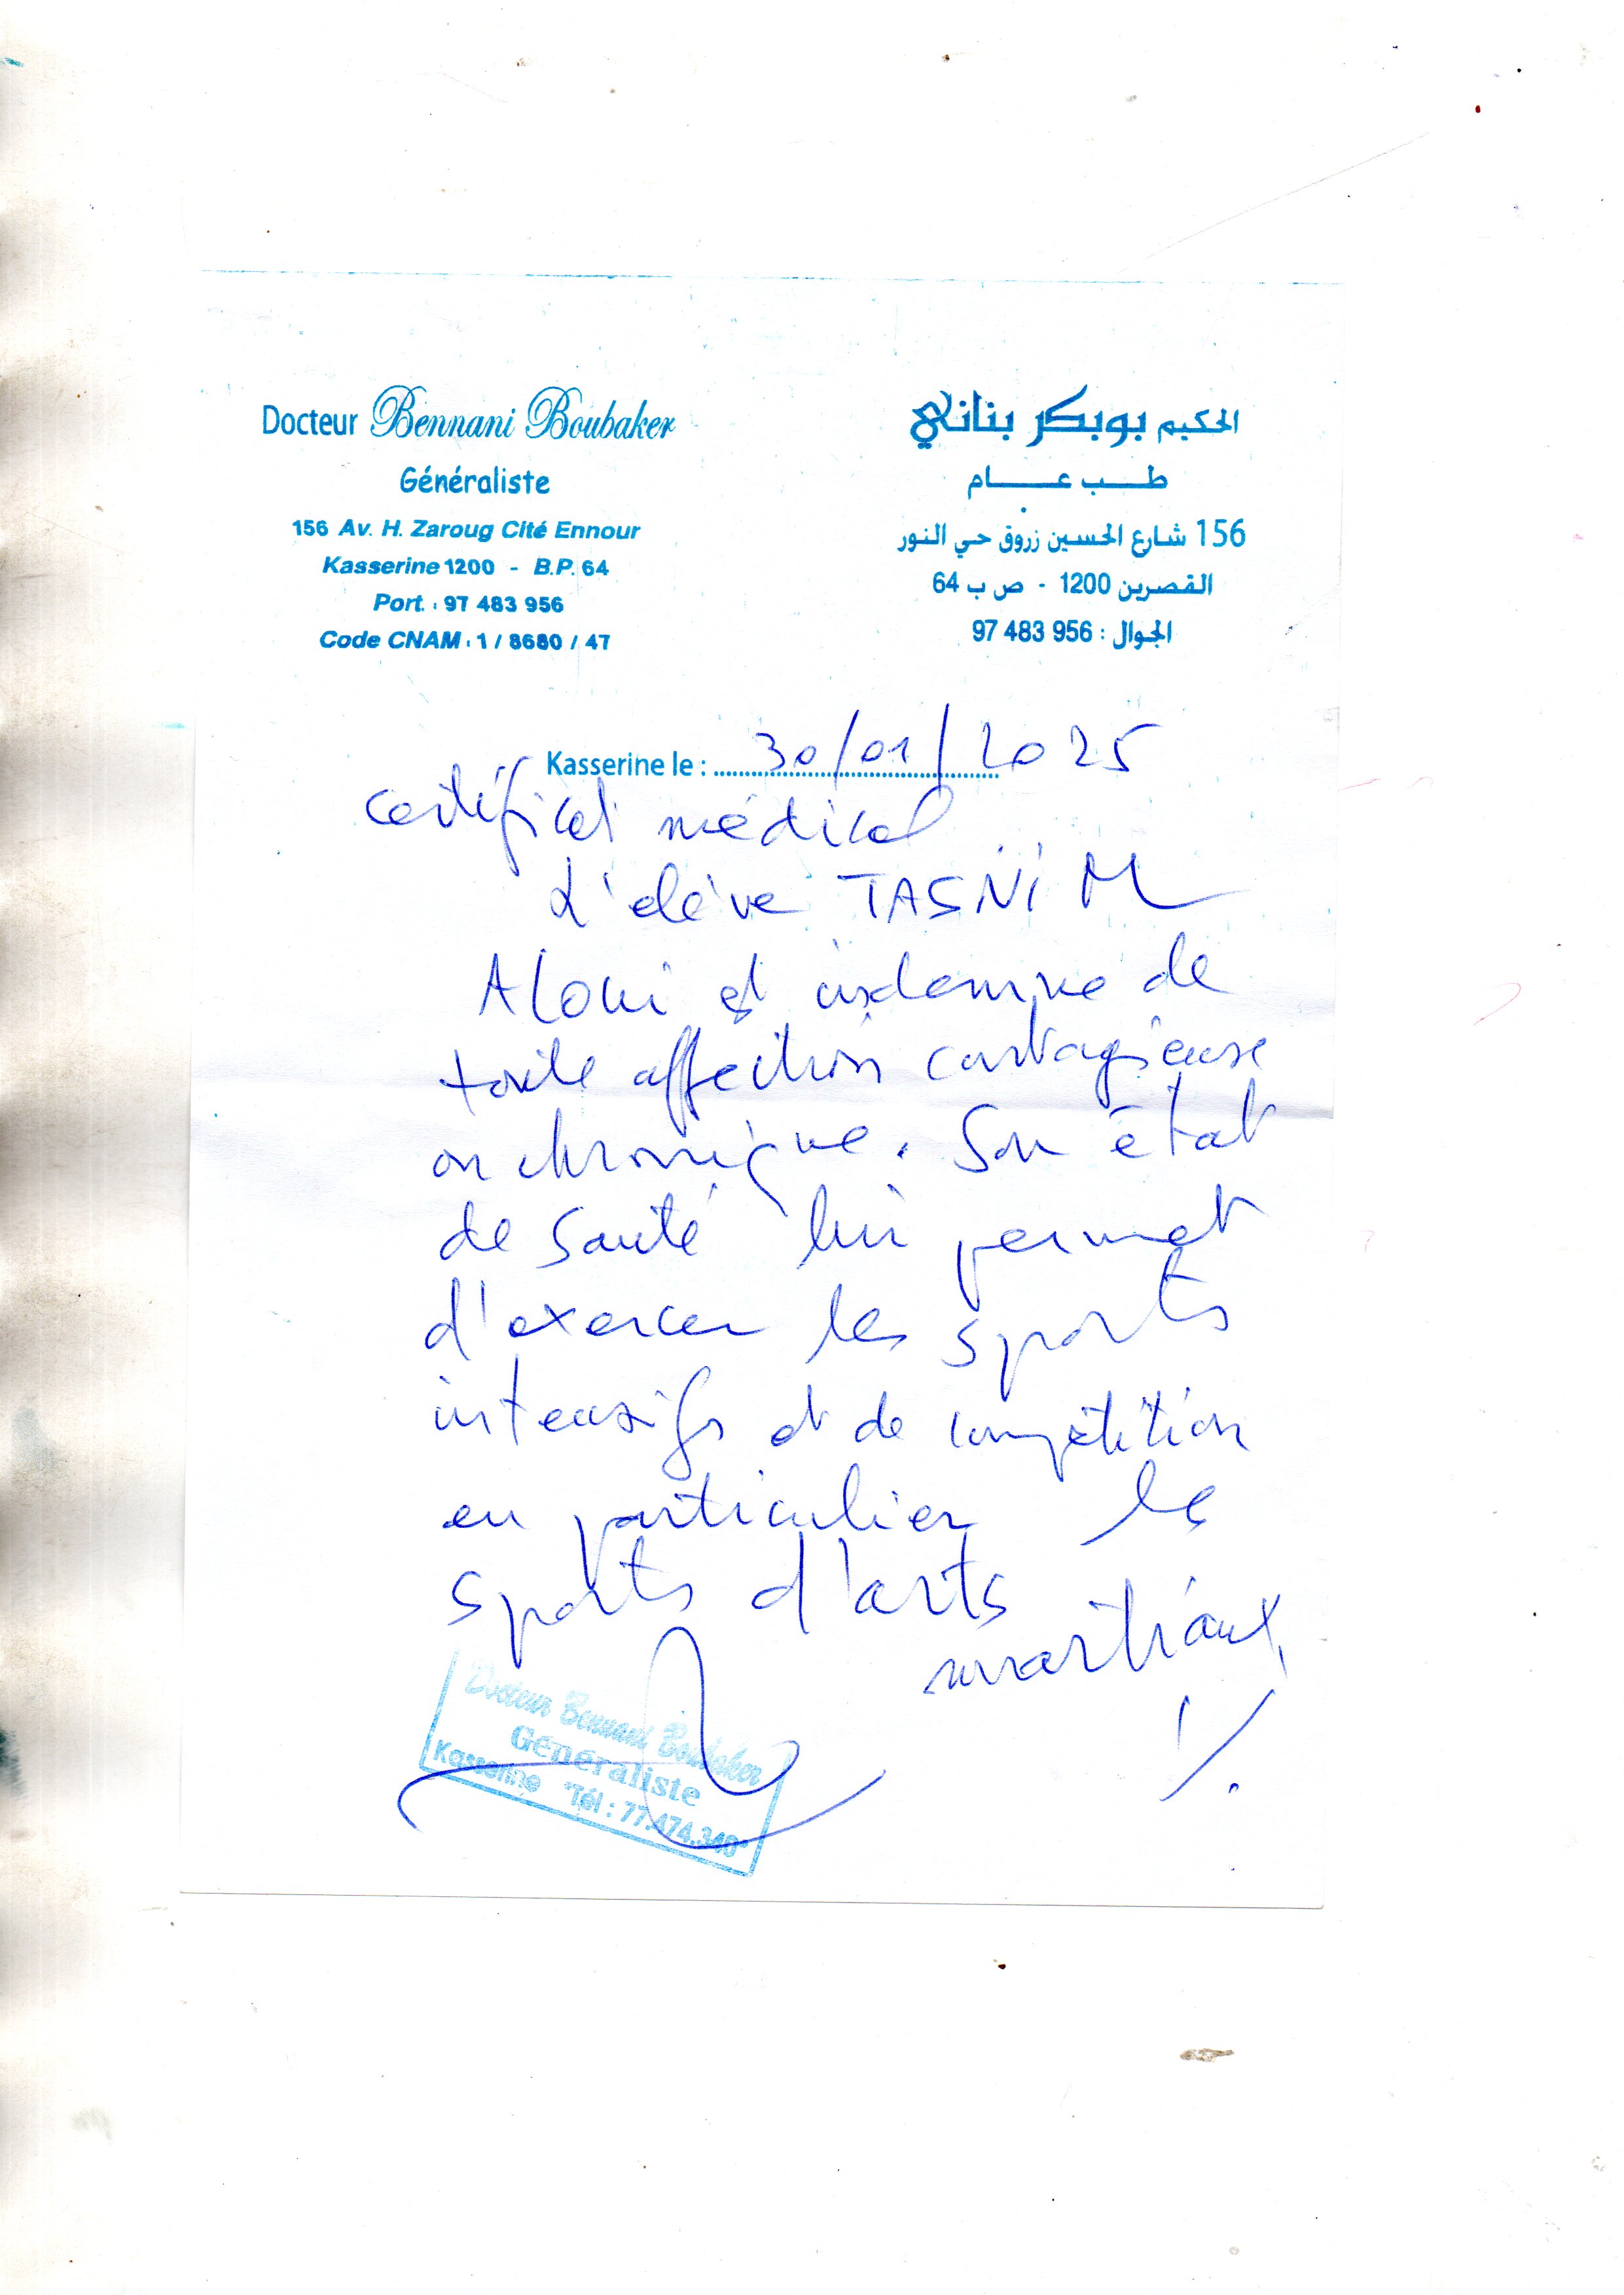 Docteur Bennani Boubaker
Généraliste
156 Av. H. Zaroug Cité Ennour
Kasserine 1200 - B.P. 64
Port. : 97 483 956
Code CNAM : 1 / 8680 / 47
الحكيم بوبكر بناني
طب عام
156 شارع الحسين زروق حي النور
القصرين 1200 - ص ب 64
الجوال : 97 483 956
Kasserine le : 30/01/2025
certificat médical
L'élève TASNIM
Aloui est indemne de
toute affection contagieuse
ou chronique. Son état
de santé lui permet
d'exercer les sports
intensifs et de compétition
en particulier les
sports d'arts
martiaux
Docteur Bennani Boubaker
Généraliste
Kasserine Tél : 77.474.340